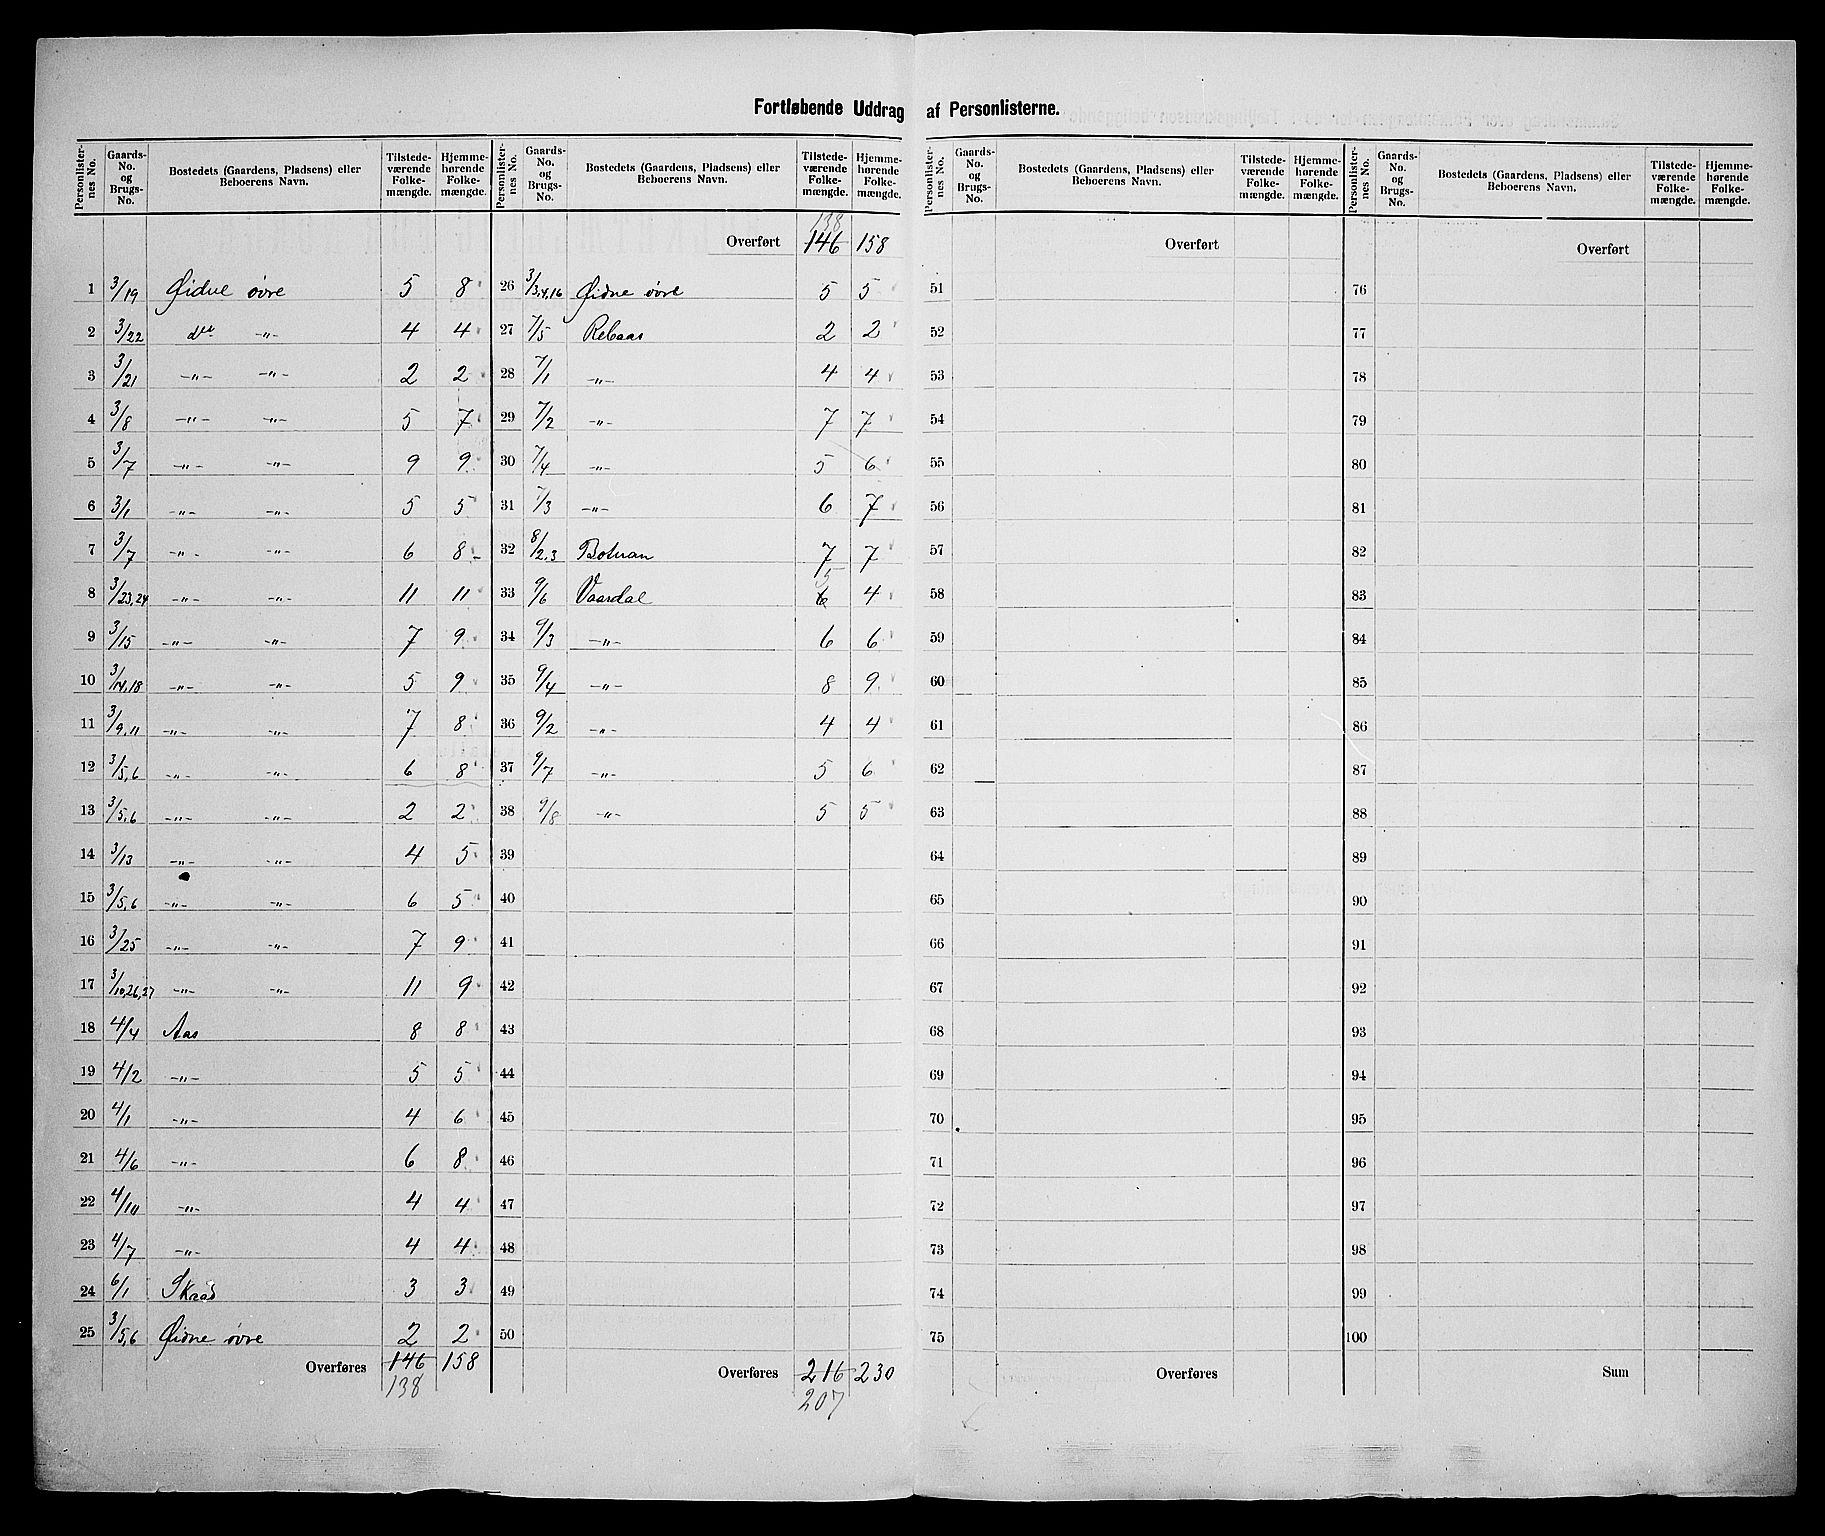 Fortløbende Uddrag af Personlisterne.
Personlister-nes No. | Gaards-No. og Brugs-No. | Bostedets (Gaardens, Pladsens) eller Beboerens Navn. | Tilstede-værende Folke-mængde. | Hjemme-hørende Folke-mængde.
1 3/19 Øidne øvre 5 8
2 3/22 do -"- 4 4
3 3/21 -"- -"- 2 2
4 3/8 -"- -"- 5 7
5 3/7 -"- -"- 9 9
6 3/1 -"- -"- 5 5
7 3/7 -"- -"- 6 8
8 3/23,24 -"- -"- 11 11
9 3/15 -"- -"- 7 9
10 3/14,18 -"- -"- 5 9
11 3/9,11 -"- -"- 7 8
12 3/5,6 -"- -"- 6 8
13 3/5,6 -"- -"- 2 2
14 3/13 -"- -"- 4 5
15 3/5,6 -"- -"- 6 5
16 3/25 -"- -"- 7 9
17 3/10,26,27 -"- -"- 11 9
18 4/4 Aas 8 8
19 4/2 -"- 5 5
20 4/1 -"- 4 6
21 4/6 -"- 6 8
22 4/10 -"- 4 4
23 4/7 -"- 4 4
24 6/1 Skraas 3 3
25 3/5,6 Øidne øvre 2 2
Overføres 146 158
138
Personlister-nes No. | Gaards-No. og Brugs-No. | Bostedets (Gaardens, Pladsens) eller Beboerens Navn. | Tilstede-værende Folke-mængde. | Hjemme-hørende Folke-mængde.
138
Overført 146 158
26 3/3,4,16 Øidne øvre 5 5
27 7/5 Rebaas 2 2
28 7/1 -"- 4 4
29 7/2 -"- 7 7
30 7/4 -"- 5 6
31 7/3 -"- 6 7
32 8/2,3 Botnan 7 7
33 9/6 Vaardal 6 5 4
34 9/3 -"- 6 6
35 9/4 -"- 8 9
36 9/2 -"- 4 4
37 9/7 -"- 5 6
38 9/8 -"- 5 5
39
40
41
42
43
44
45
46
47
48
49
50
Overføres 216 230
207
Personlister-nes No. | Gaards-No. og Brugs-No. | Bostedets (Gaardens, Pladsens) eller Beboerens Navn. | Tilstede-værende Folke-mængde. | Hjemme-hørende Folke-mængde.
Overført
51
52
53
54
55
56
57
58
59
60
61
62
63
64
65
66
67
68
69
70
71
72
73
74
75
Overføres
Personlister-nes No. | Gaards-No. og Brugs-No. | Bostedets (Gaardens, Pladsens) eller Beboerens Navn. | Tilstede-værende Folke-mængde. | Hjemme-hørende Folke-mængde.
Overført
76
77
78
79
80
81
82
83
84
85
86
87
88
89
90
91
92
93
94
95
96
97
98
99
100
Sum